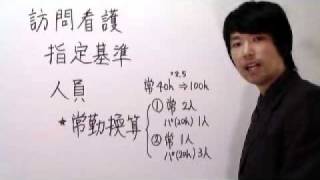 訪問看護
指定基準
人員
*2.5
常40h ⇒100h
★常勤換算
① 常 2人
パ(20h) 1人
② 常 1人
パ(20h) 3人